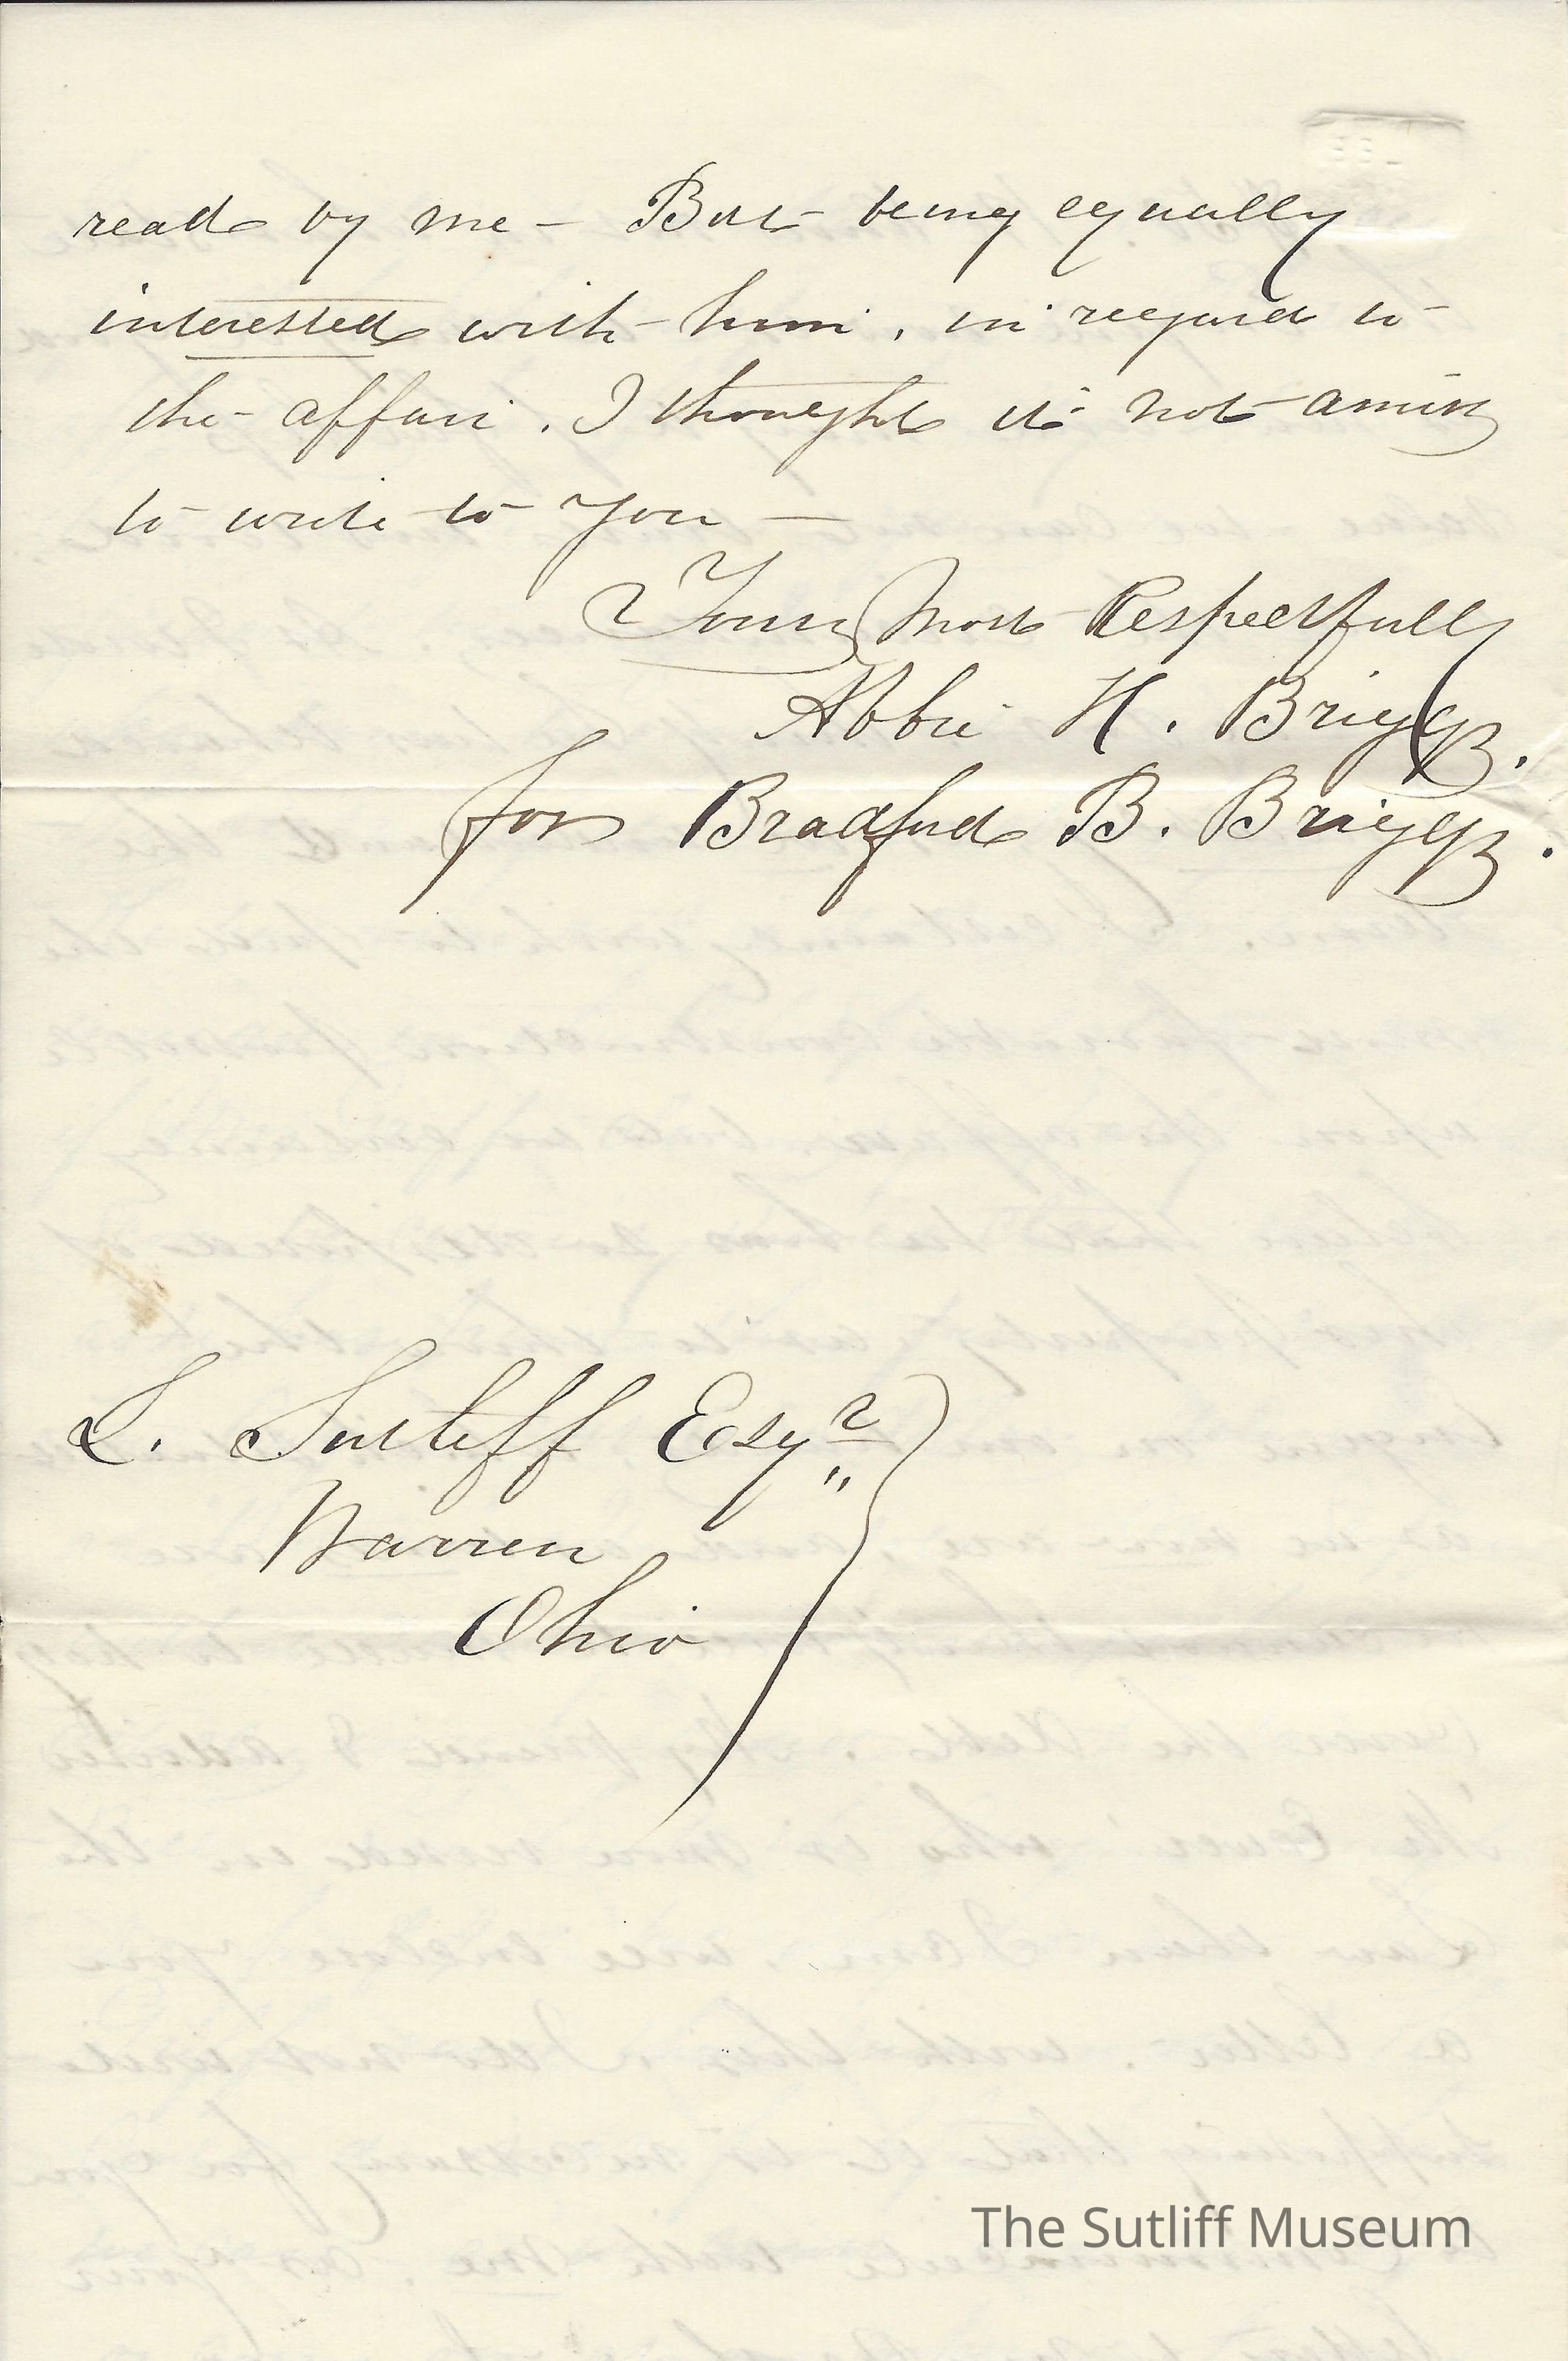 read by me — But being equally
interested with him, in regard to
the affair. I thought it not amiss
to write to you —
Yours Most Respectfully
Abbie H. Briggs.
for Bradford B. Briggs.
L. Sutliff Esqr
Warren
Ohio
The Sutliff Museum